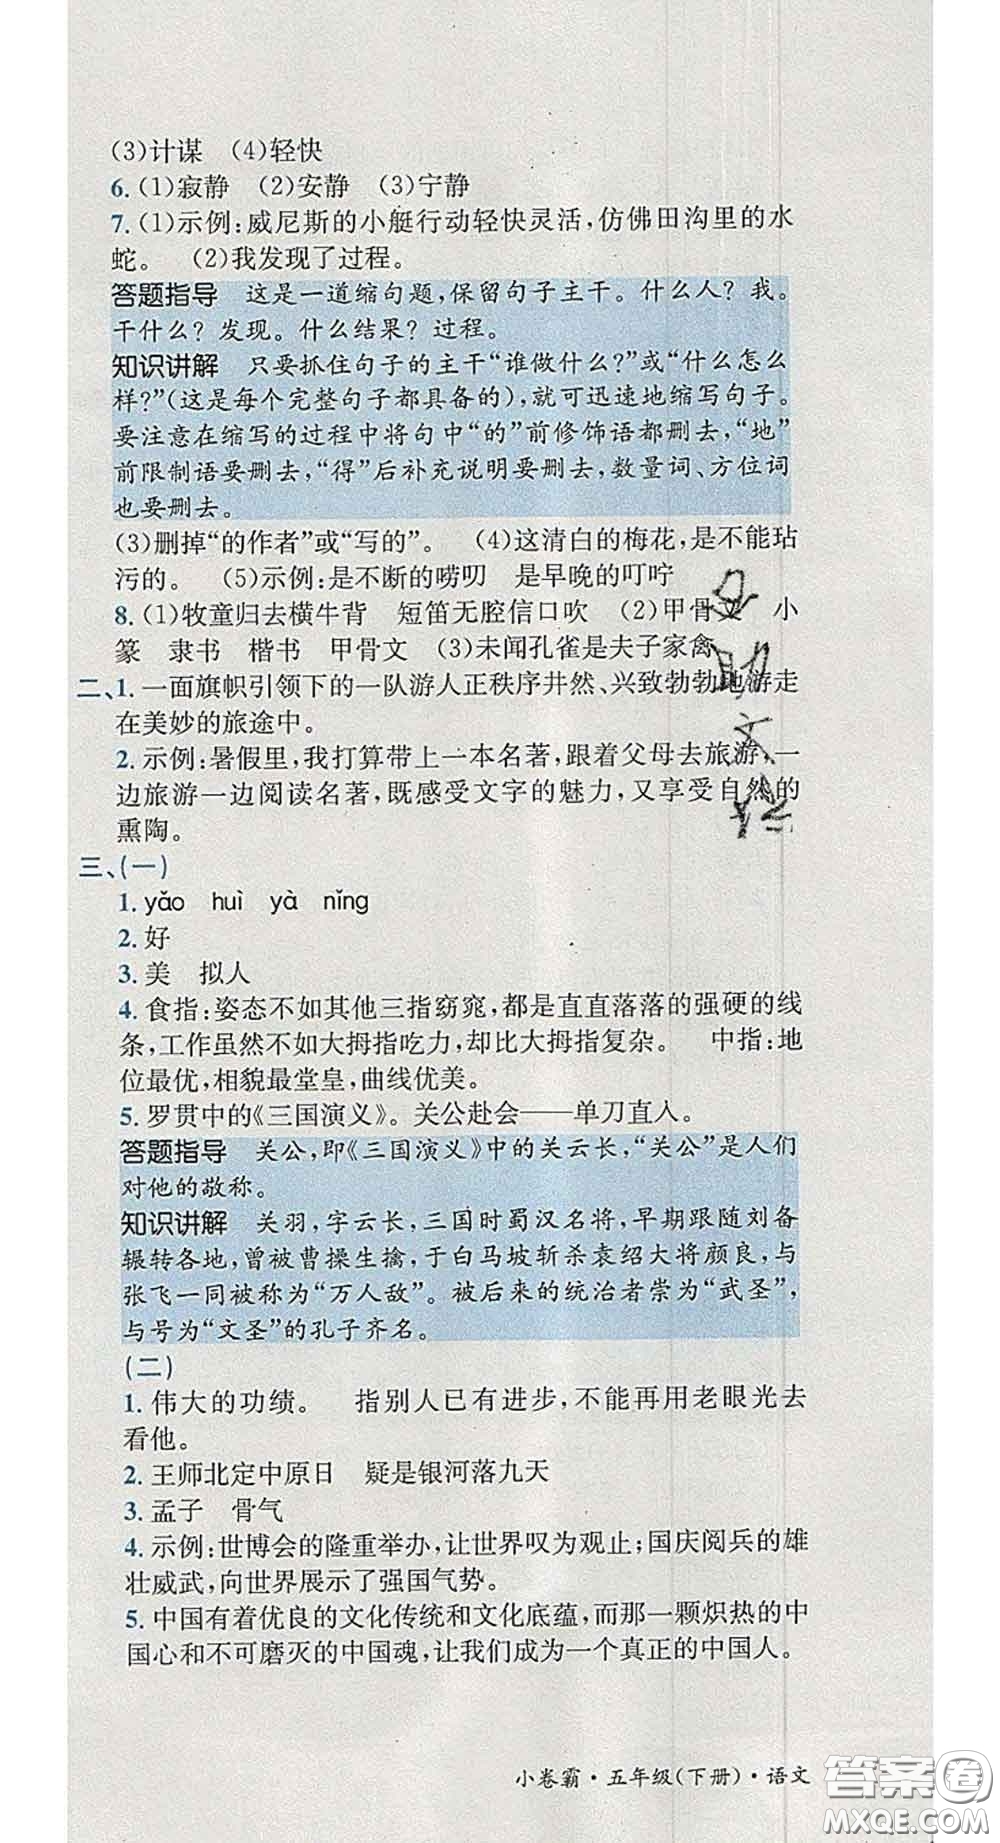 (3)计谋 (4)轻快
6.(1)寂静 (2)安静 (3)宁静
7.(1)示例:威尼斯的小艇行动轻快灵活,仿佛田沟里的水
蛇。 (2)我发现了过程。
答题指导 这是一道缩句题,保留句子主干。什么人?我。
干什么?发现。什么结果?过程。
知识讲解 只要抓住句子的主干“谁做什么?”或“什么怎么
样?”(这是每个完整句子都具备的),就可迅速地缩写句子。
要注意在缩写的过程中将句中“的”前修饰语都删去,“地”
前限制语要删去,“得”后补充说明要删去,数量词、方位词
也要删去。
(3)删掉“的作者”或“写的”。 (4)这清白的梅花,是不能玷
污的。 (5)示例:是不断的唠叨 是早晚的叮咛
8.(1)牧童归去横牛背 短笛无腔信口吹 (2)甲骨文 小
篆 隶书 楷书 甲骨文 (3)未闻孔雀是夫子家禽
二、1.一面旗帜引领下的一队游人正秩序井然、兴致勃勃地游走
在美妙的旅途中。
2.示例:暑假里,我打算带上一本名著,跟着父母去旅游,一
边旅游一边阅读名著,既感受文字的魅力,又享受自然的
熏陶。
三、(一)
1.yǎo huì yà nǐng
2.好
3.美 拟人
4.食指:姿态不如其他三指窈窕,都是直直落落的强硬的线
条,工作虽然不如大拇指吃力,却比大拇指复杂。 中指:地
位最优,相貌最堂皇,曲线优美。
5.罗贯中的《三国演义》。关公赴会——单刀直入。
答题指导 关公,即《三国演义》中的关云长,“关公”是人们
对他的敬称。
知识讲解 关羽,字云长,三国时蜀汉名将,早期跟随刘备
辗转各地,曾被曹操生擒,于白马坡斩杀袁绍大将颜良,与
张飞一同被称为“万人敌”。被后来的统治者崇为“武圣”,
与号为“文圣”的孔子齐名。
(二)
1.伟大的功绩。 指别人已有进步,不能再用老眼光去
看他。
2.王师北定中原日 疑是银河落九天
3.孟子 骨气
4.示例:世博会的隆重举办,让世界叹为观止;国庆阅兵的雄
壮威武,向世界展示了强国气势。
5.中国有着优良的文化传统和文化底蕴,而那一颗炽热的中
国心和不可磨灭的中国魂,让我们成为一个真正的中国人。
小卷霸·五年级(下册)·语文
答案圈
MXQE.COM